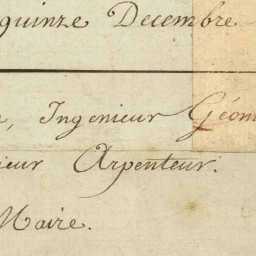 quinze Decembre
, Ingenieur Géom
ieur Arpenteur.
Maire.